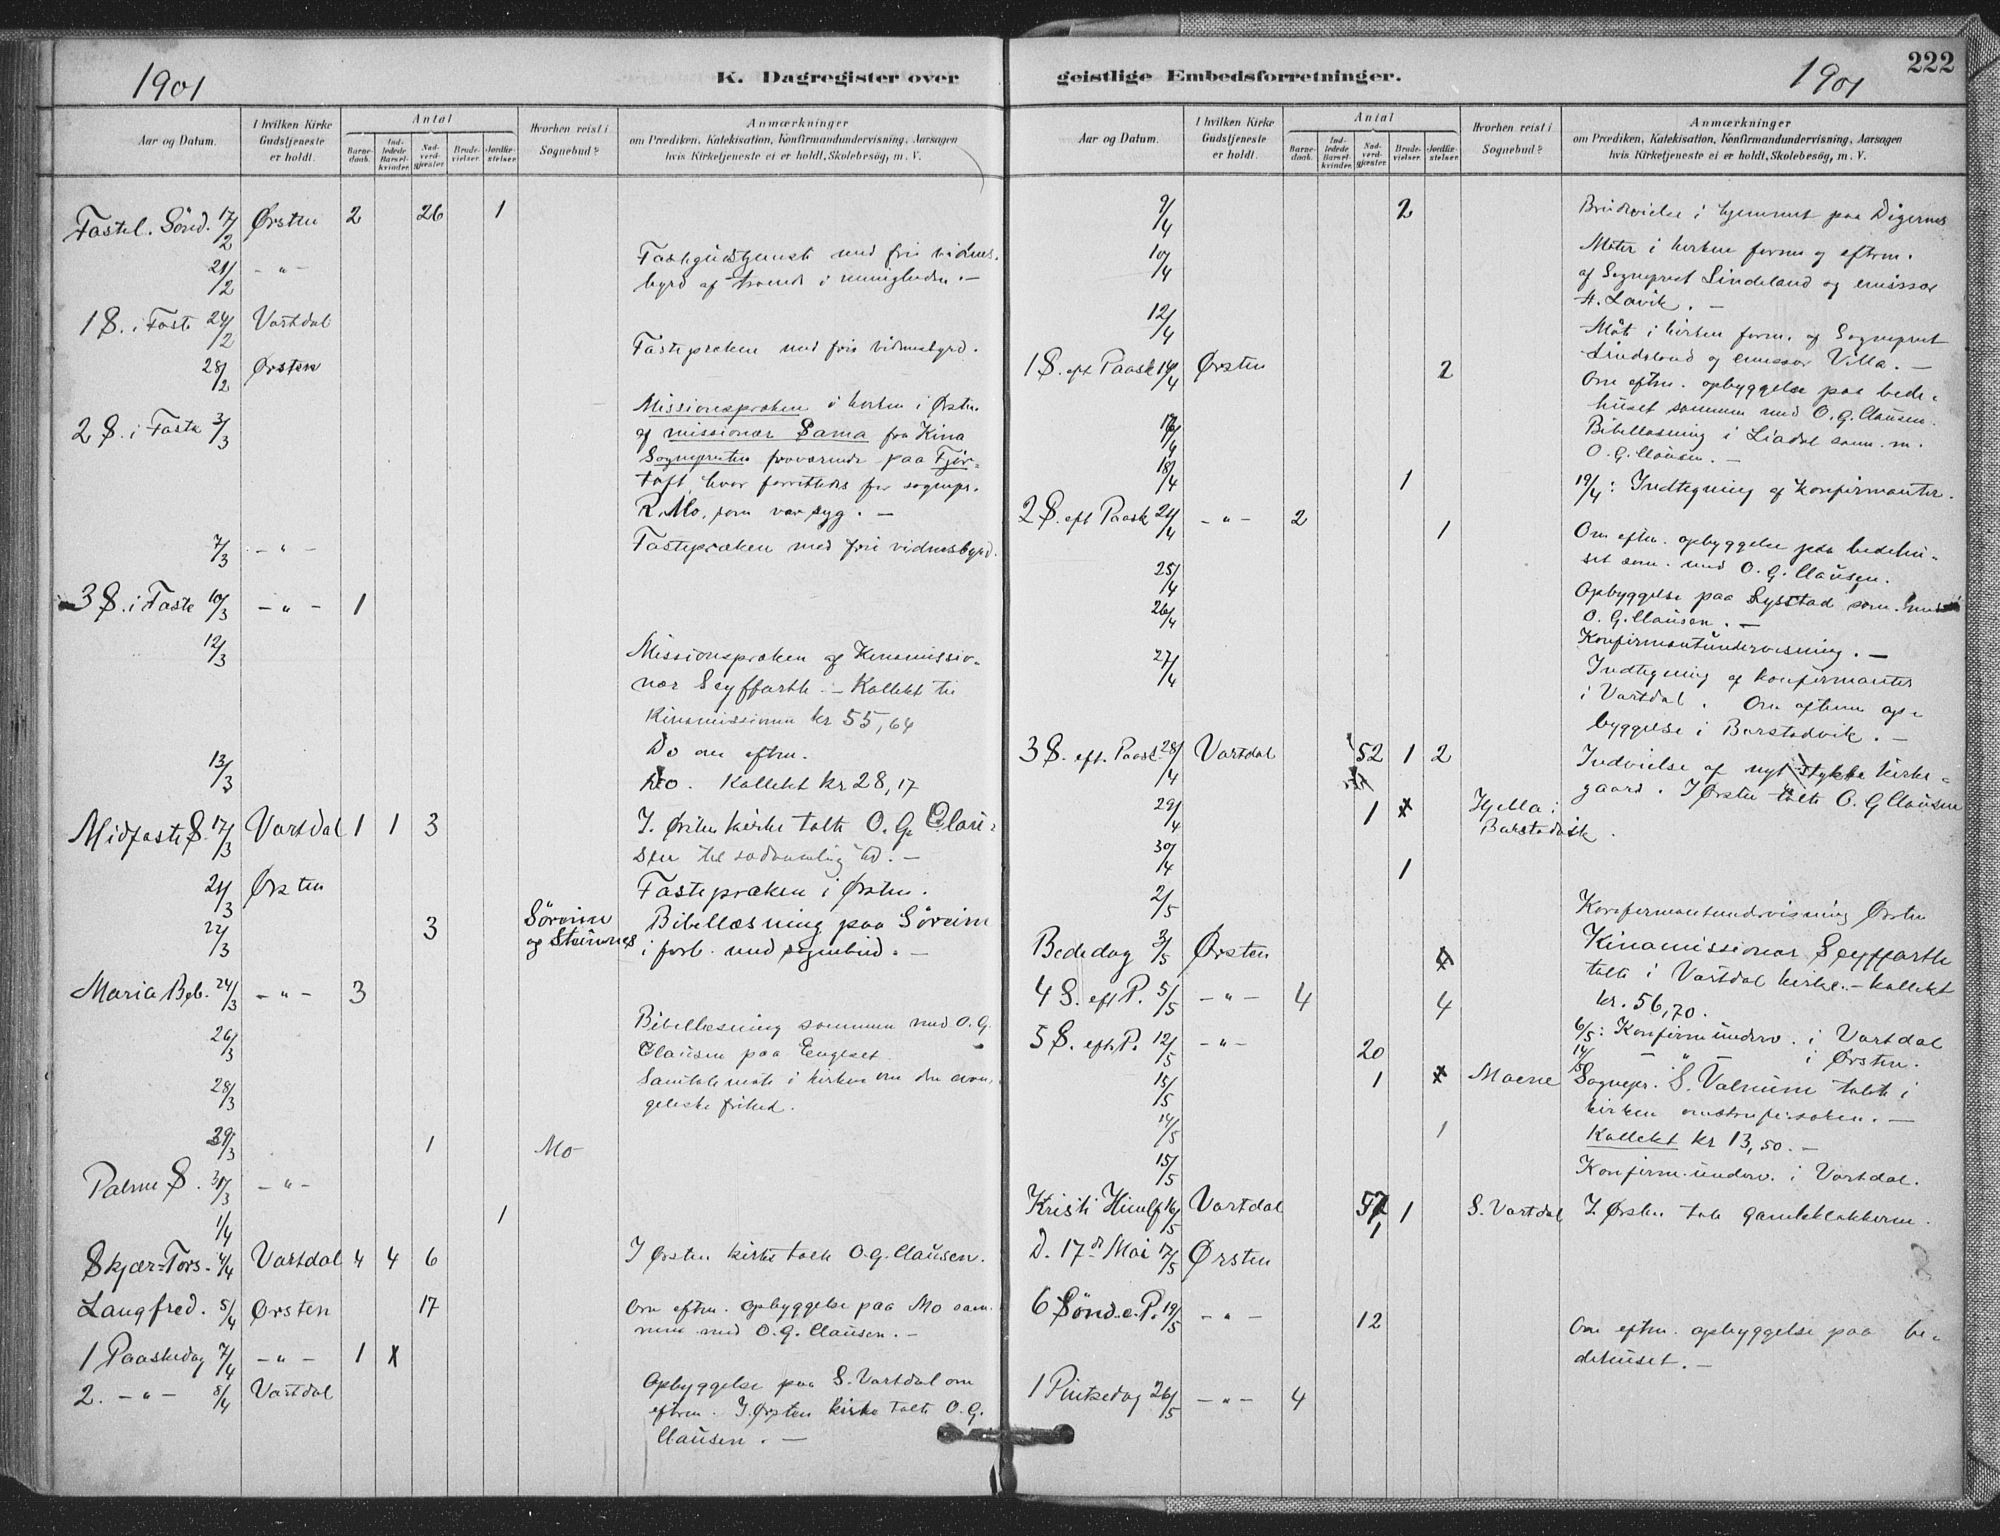 1901
K. Dagregister over
Aar og Datum.
I hvilken Kirke Gudstjeneste er holdt.
Antal
Barnedaab.
Indledede Barselkvinder.
Nadverdgjæster.
Brudevielser.
Jordfæstelser.
Hvorhen reist i Sognebud?
Anmærkninger
om Prædiken, Katekisation, Konfirmandundervisning, Aarsagen
hvis Kirketjeneste ei er holdt, Skolebesøg, m. V.
Fastel. Sönd. 17/2 Ørsten 2 26 1
21/2 - " - Fastegudstjeneste med frie vidnes-
byrd af troende i menigheden. -
1 S. i Faste 24/2 Vartdal
28/2 Ørsten Fastepræken med frie vidnesbyrd.
2 S. i Faste 3/3 Missionspræken i kirken i Ørsten
af missionær Sama fra Kina
Sognepresten fraværende paa Fjør-
toft, hvor forrettedes for sognepr.
R. Mo, som var syg. -
7/3 - " - Fastepræken med frie vidnesbyrd.
3 S. i Faste 10/3 - " - 1
12/3 Missionspræken af Kinamissio-
nær Seyffarth - Kollekt til
Kinamissionen kr 55,64
Do om eftm.
13/3 Do. Kollekt kr 28,17
Midfaste S. 17/3 Vartdal 1 1 3 I Ørsten kirke talte O. G. Clau-
sen til sædvanlig tid. -
21/3 Ørsten Fastepræken i Ørsten.
22/3 3 Søreim og Steinnes Bibellæsning paa Søreim
i forb. med sognebud. -
Maria Beb. 24/3 - " - 3
26/3 Bibellæsning sammen med O. G.
Clausen paa Engeset.
28/3 Samtalemøte i kirken om den evan-
geliske frihed.
29/3 1 Mo
Palme S. 31/3 - " -
1/4 1
Skjær-Tors. 4/4 Vartdal 4 4 6 I Ørsten kirke talte O. G. Clausen.
Langfred. 5/4 Ørsten 17 Om eftm. opbyggelse paa Mo sam-
men med O. G. Clausen. -
1 Paaskedag 7/4 - " - 1 x
2. - " - 8/4 Vartdal Opbyggelse paa S. Vartdal om
eftm. I Ørsten kirke talte O. G.
Clausen. -
geistlige Embedsforretninger.
1901
222
Aar og Datum.
I hvilken Kirke Gudstjeneste er holdt.
Antal
Barnedaab.
Indledede Barselkvinder.
Nadverdgjæster.
Brudevielser.
Jordfæstelser.
Hvorhen reist i Sognebud?
Anmærkninger
om Prædiken, Katekisation, Konfirmandundervisning, Aarsagen
hvis Kirketjeneste ei er holdt, Skolebesøg, m. V.
9/4 2 Brudevielse i hjemmet paa Digernes
10/4 Møter i kirken form og eftm.
af Sogneprest Lindeland og emissær
A. Lavik. -
12/4 Møte i kirken form. af Sogneprest
Lindeland og emissær Villa. -
1 S. eft Paask 14/4 Ørsten 2 Om eftm. opbyggelse paa bede-
huset sammen med O. G. Clausen.
17/4 Bibellæsning i Liadal sam. m.
O. G. Clausen. -
18/4 1 19/4: Indtegning af Konfirmanter.
2 S. eft Paask 21/4 - " - 2 1 Om eftm. opbyggelse paa bedehu-
set sam. med O. G. Clausen.
25/4 Opbyggelse paa Lystad sam.
O. G. Clausen. -
26/4 Konfirmantundervisning. -
27/4 Indtegning af konfirmanter
i Vartdal. Om eftm op-
byggelse i Barstadvik. -
3 S. eft. Paask. 28/4 Vartdal 52 1 2 Indvielse af nyt stykke kirke-
gaard. I Ørsten talte O. G Clausen
29/4 1 x Hjella i
Barstadvik.
30/4 1
2/5 Konfirmantundervisning Ørsten
Bededag 3/5 Ørsten Kinamissionær Seyffarth
talte i Vartdal kirke. - kollekt
kr. 56,70.
4 S. eft P. 5/5 - " - 4 4
6/5: Konfirm underv. i Vartdal
5 S. eft. P. 12/5 - " - 20 14/5 - " - i Ørsten.
13/5 1 x Moene Sognepr. S. Valnum talte i
kirken
14/5 1 Kollekt kr 13,50. -
15/5 Konfirm. underv. i Vartdal.
Kristi Himlf 16/5 Vartdal 1 S. Vartdal I Ørsten tale gamleklokkeren.
D. 17de Mai 17/5 Ørsten
6 Sønd. e. P. 19/5 - " - 12 Om eftm. opbyggelse paa be-
dehuset. -
1 Pintsedag 26/5 - " - 4